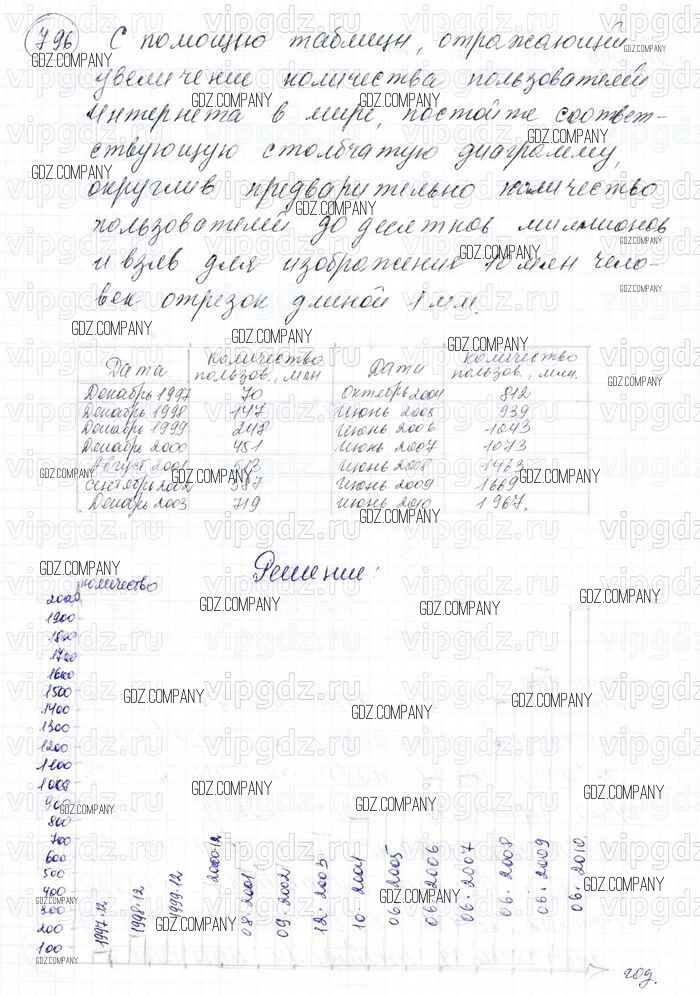 796 С помощью таблицы, отражающей
увеличение количества пользователей
Интернета в мире, постойте соответ-
ствующую столбчатую диаграмму,
округлив предварительно количество
пользователей до десятков миллионов
и взяв для изображения 10 млн чело-
век отрезок длиной 1 мм.
Дата Количество пользов., млн Дата Количество пользов., млн.
Декабрь 1997 70 Октябрь 2004 812
Декабрь 1998 147 Июнь 2005 939
Декабрь 1999 248 Июнь 2006 1043
Декабрь 2000 451 Июнь 2007 1073
Август 2001 Июнь 2008 1463
Сентябрь 2002 587 Июнь 2009 1669
Декабрь 2003 719 Июнь 2010 1967.
Решение:
количество
2000
1900
1800
1700
1600
1500
1400
1300
1200
1100
1000
900
800
700
600
500
400
300
200
100
1997.12
1998.12
1999.12
2000.12
08.2001
09.2002
12.2003
10.2004
06.2005
06.2006
06.2007
06.2008
06.2009
06.2010
год.
GDZ.COMPANY
vipgdz.ru